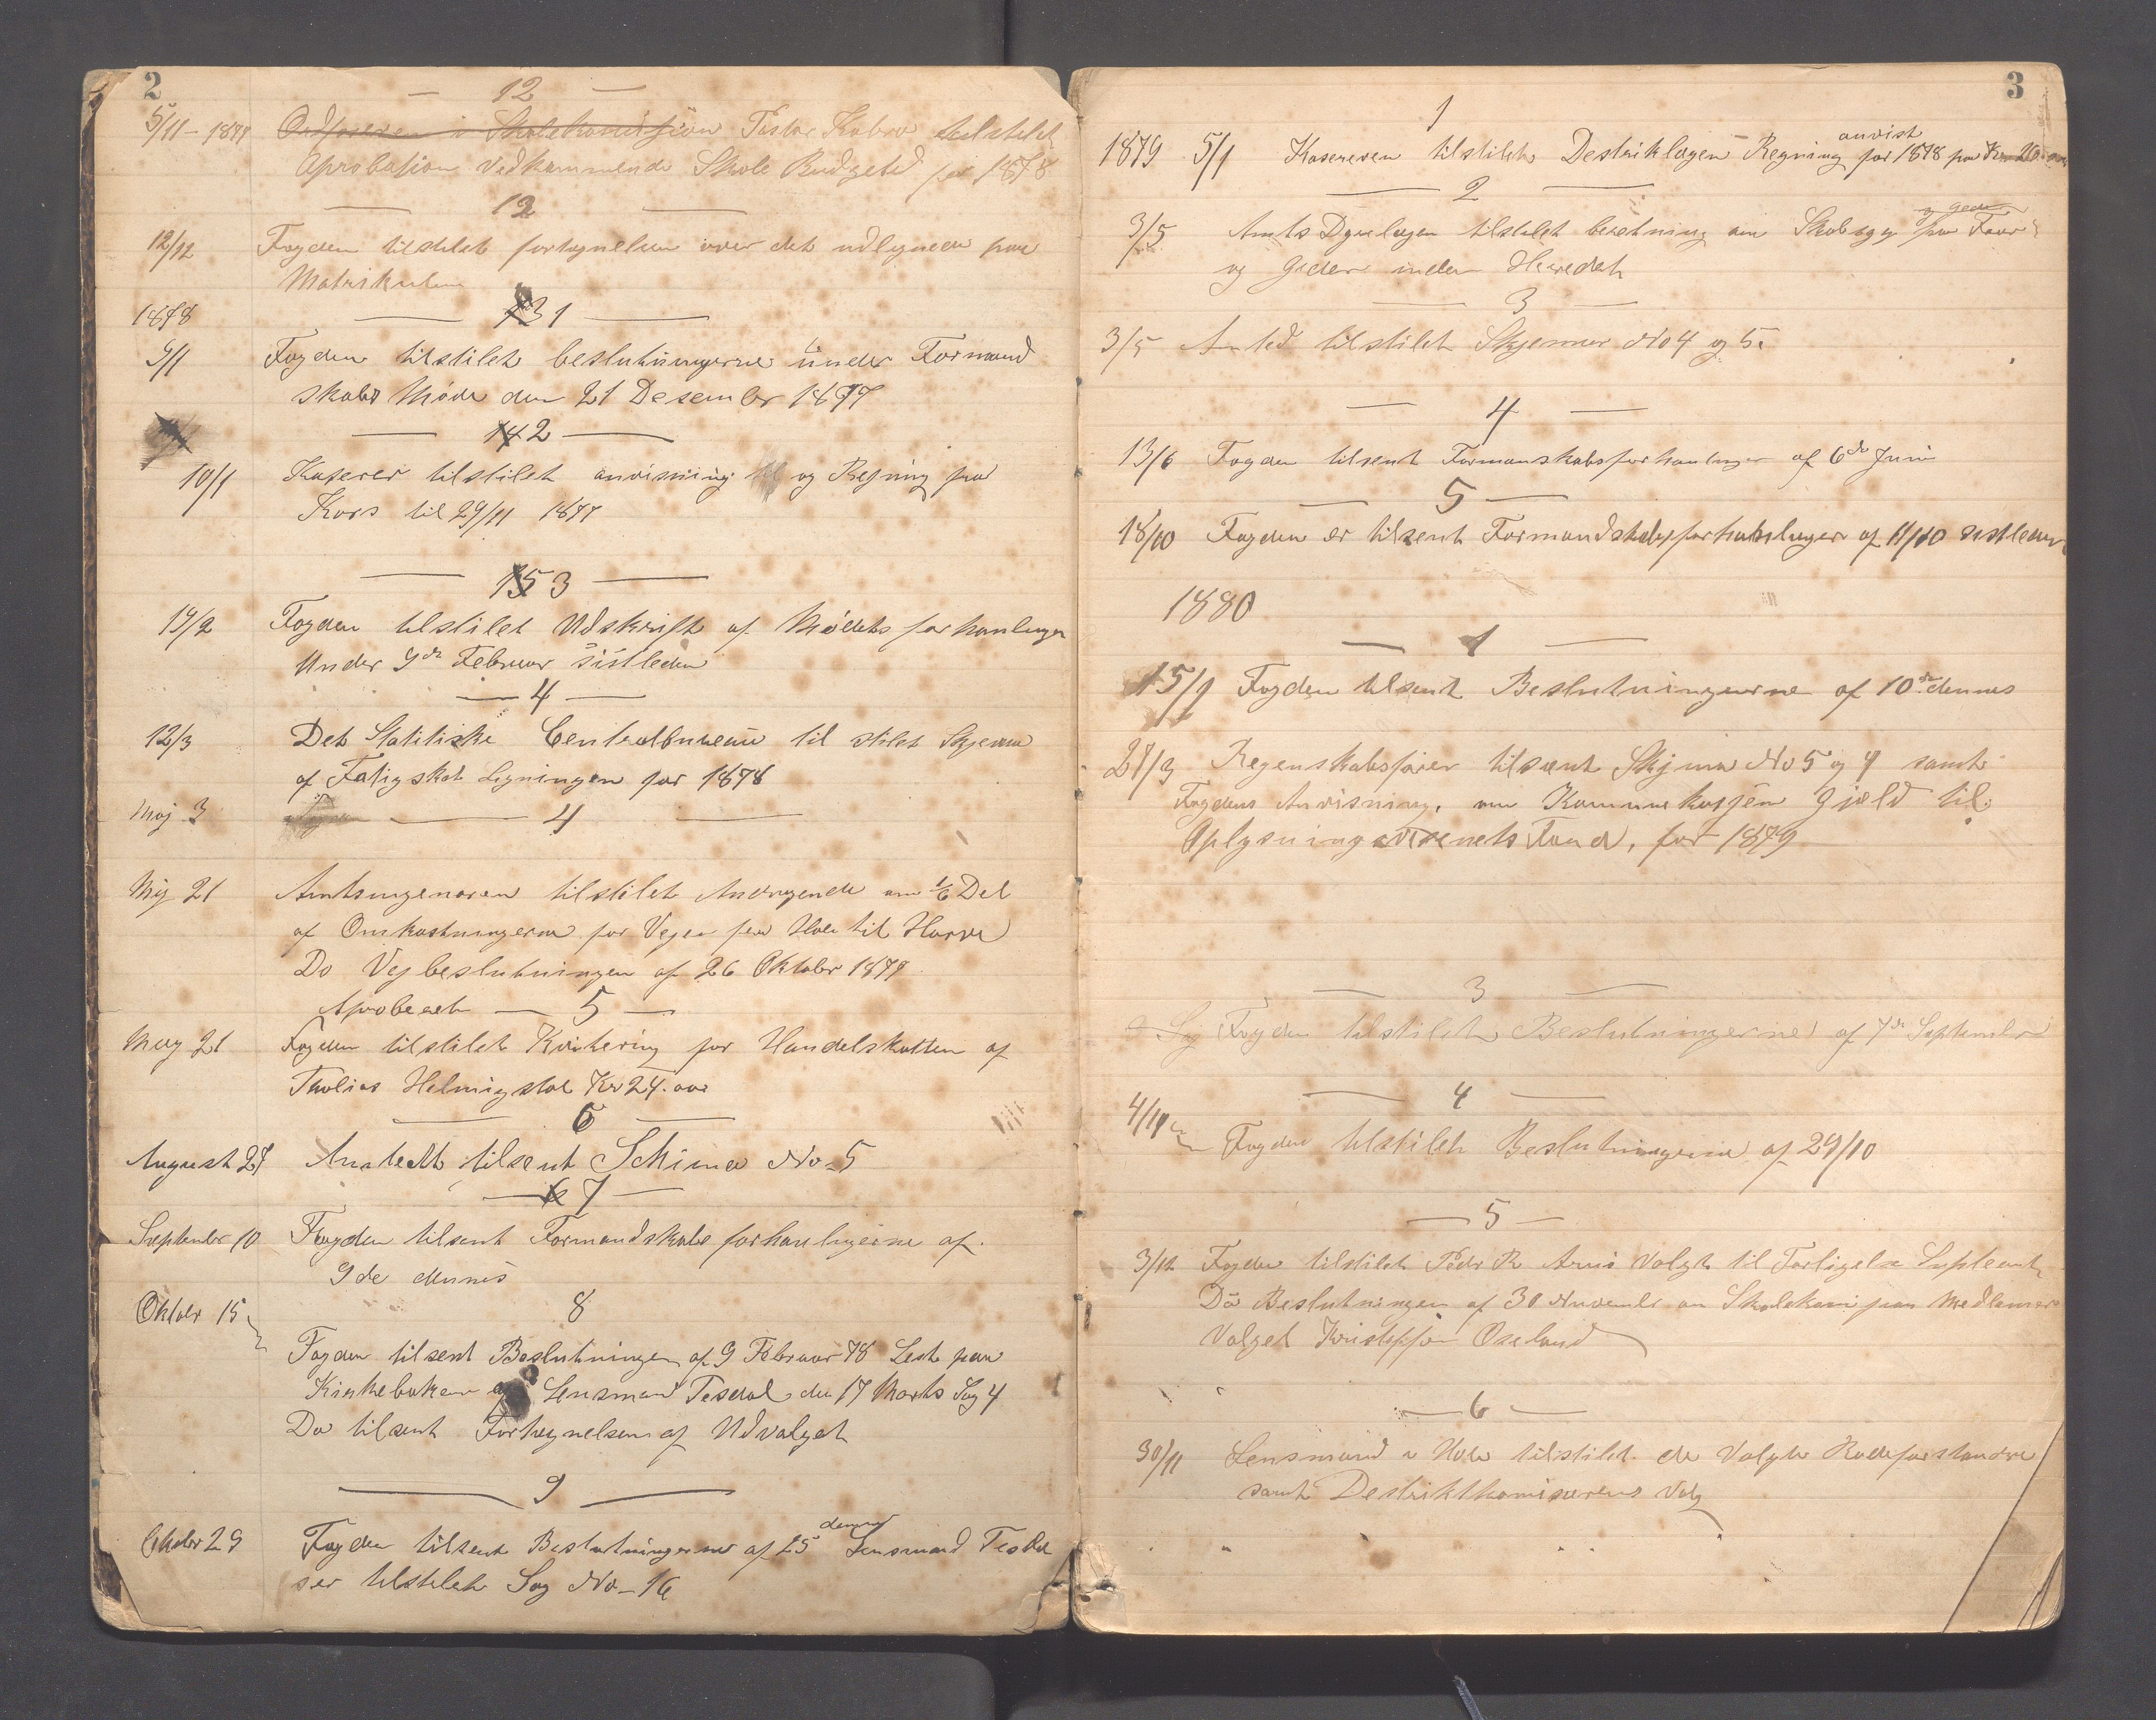 2
— 12 —
5/11 - 1877 Ordføreren i Skolekomisjon tilstilet
Aprobasion vedkommende Skole Budgeted for 1878
— 12 —
12/12 Fogden tilstilet fortegnelsen over det udlignede paa
Matrikulen
1878 — 1 —
9/1 Fogden tilstilet beslutningerne under Formand
skabs Møde den 21 Desember 1877
— 2 —
10/1 Kaserer tilstilet anvisning og Regning fra
Kors til 29/11 1877
— 153 —
14/2 Fogden tilstilet Udskrift af Mødets forhanlinger
Under 9de Februar sistleden
— 4 —
12/3 Det Statitiske Centralbureau til stilet Skjema
af Fatigskat Ligningen for 1878
Maj 3 — 4 —
Maj 21 Amtsingenøren tilstilet Andragende om 1/6 Del
af Omkostningerne for Vejen fra Hole til Harve
Do Vejbeslutningen af 26 Oktober 1877
Aproberet — 5 —
May 21 Fogden tilstilet Kvitering for Handelskatten af
Tholias Helmigstøl Kr 24.00
— 6 —
August 27 Amtedt tilsent Schima No 5
— 7 —
September 10 Fogden tilsent Formandskabs forhanlingerne af
9de dennes
Oktobr 15 8
Fogden tilsent Beslutningen af 9 Februar 78 Lest paa
Kirkebakken Lensmand Tesdal den 17 Marts Sag 4
Do tilsent Fortegnelsen af Udvalget
— 9 —
Oktobr 29 Fogden tilsent Beslutningerne af 25 dennes Lensmand Tesdal
ser tilstilet Sag No - 16
3
1
1879 5/1 Kasereren tilstilet Destriklægen Regning anvist for 1878 paa Kr
— 2 —
3/5 Amts Dyrelægen tilstilet beretning om Skabsyge paa Faar
og Geder inden Heredet
— 3 —
3/5 Amted tilstilet Skjemaer No 4 og 5.
— 4 —
13/6 Fogden tilsent Formanskabsforhanlinger af 6de Juni
— 5 —
18/10 Fogden er tilsent Formandskabsforhanlinger af 11/10 sistleden
1880
— 1 —
15/1 Fogden tilsent Beslutningerne af 10de dennes
27/3 Regenskabsfører tilsent Skjma No 5 og 9 samt
Fogdens Anvisning, om Kommunekassen Gjæld til
Oplysningsvesenets Fond, for 1879
— 3 —
Sag Fogden tilstilet Beslutningerne af 7de September
— 4 —
4/11 Fogden tilstilet Beslutningerne af 29/10
— 5 —
3/12 Fogden tilstilet Pedr R Valgt til Forligels Supleant
Do Beslutningen af 30 November om Skolekomisjon Medlemer
Valget Kristoffer Oseland
— 6 —
30/11 Lensmand i Hole tilstilet de Valgte Rodeforstandre
samt Destriktkomisærens Valg